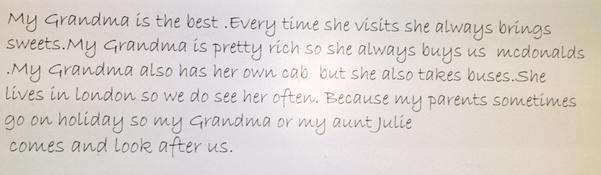 My Grandma is the best .Every time she visits she always brings
sweets.My Grandma is pretty rich so she always buys us mcdonalds
.My Grandma also has her own cab but she also takes buses.She
lives in london so we do see her often. Because my parents sometimes
go on holiday so my Grandma or my aunt Julie
comes and look after us.